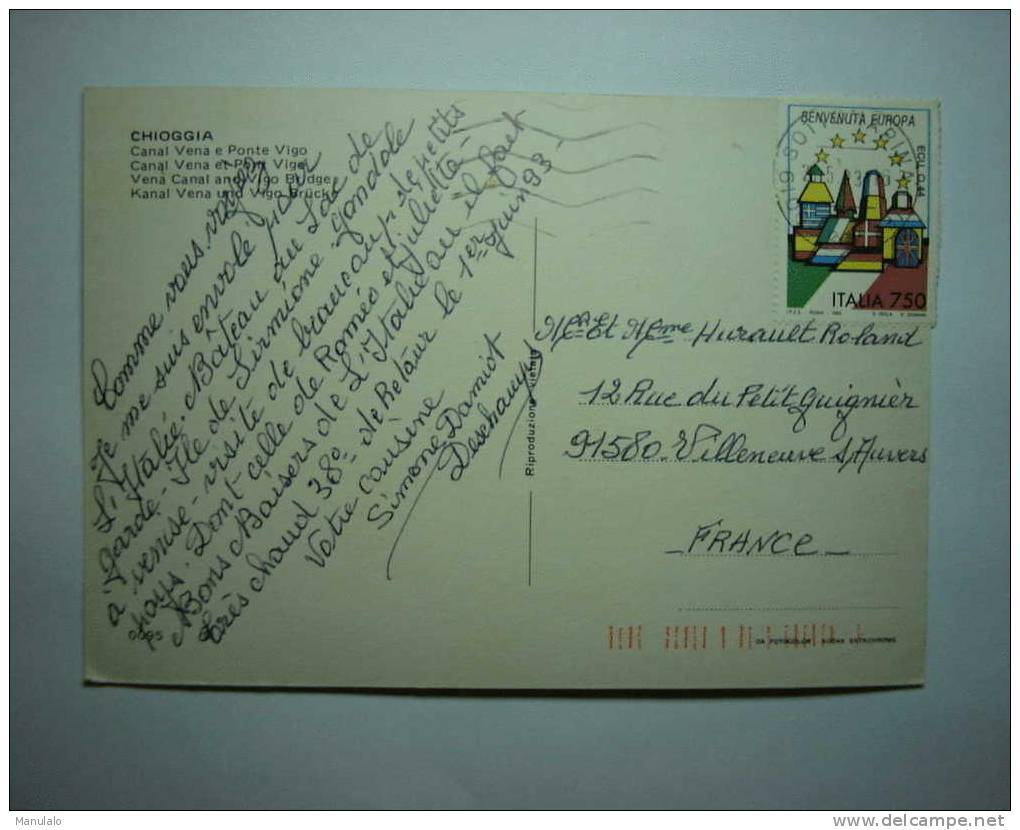 CHIOGGIA
Canal Vena e Ponte Vigo
Canal Vena et Pont Vigo
Vena Canal and Vigo Bridge
Kanal Vena und Vigo Brücke
Comme vous voyez
Je me suis envolé pour
L'Italie. Bâteau au Lac de
garde - Ile de Sirmione gondole
à venise - visite de beaucoup de petits
pays. Dont celle de Roméo et juliette -
Bons Baisers de L'Italie au il fait
très chaud 38° de Retour le 1er Juin 93 -
Votre cousine
Simone Damiot
Deschamps
0095
Riproduzione vietata
BENVENUTA EUROPA
ECU 0,41
ITALIA 750
Mr Et Mme Hurault Roland
12 Rue du Petit Guignièr
91580. Villeneuve S/Auvers
_ FRANCE _
Manulalo
www.delcampe.net